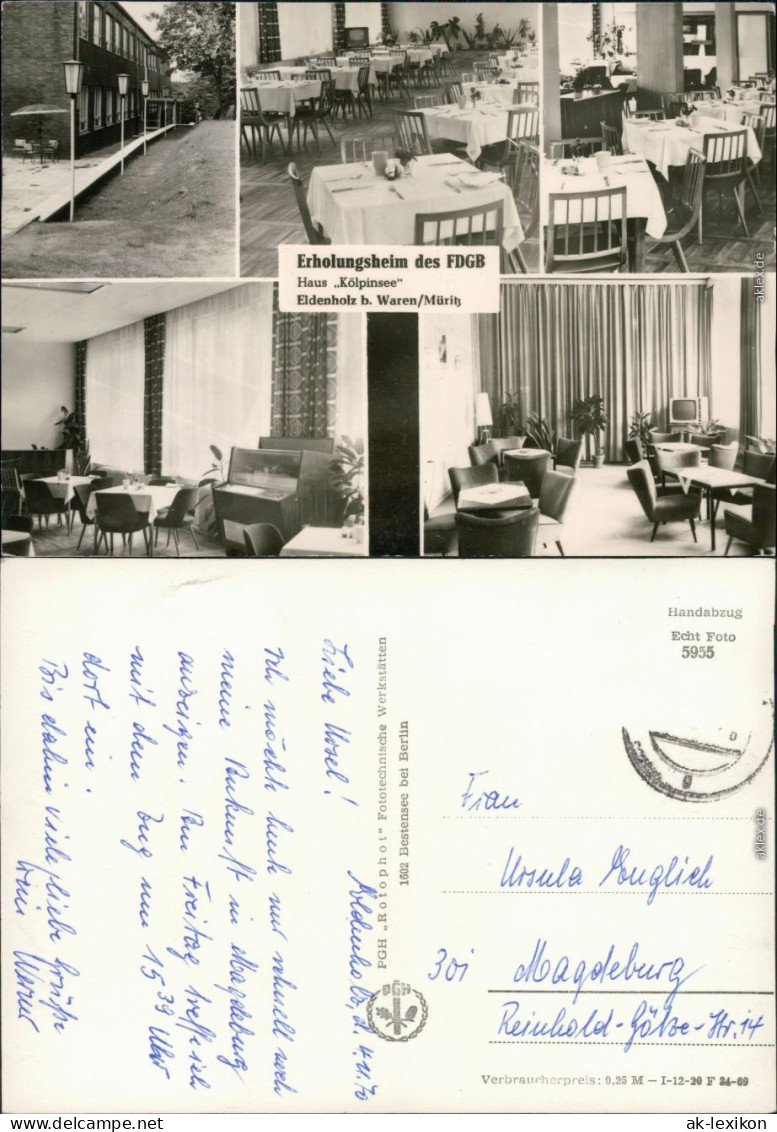 Erholungsheim des FDGB
Haus „Kölpinsee"
Eldenholz b. Waren/Müritz
Handabzug
Echt Foto
5955
Frau
Ursula Englich
301 Magdeburg
Reinhold-Götze-Str. 14
Verbraucherpreis: 0,25 M — I-12-20 F 24-69
PGH „Rotophot" Fototechnische Werkstätten
1602 Bestensee bei Berlin
PGH
Eldenholz, d. 4.11.70
Liebe Ursel!
Ich möchte heute nur schnell noch
meine Ankunft in Magdeburg
anzeigen. Am Freitag treffe ich
mit dem Zug um 15 39 Uhr
dort ein.
Bis dahin viele liebe Grüße
Dein Werner
aklex.de
aklex.de
www.ansichtskarten-lexikon.de
ak-lexikon.com